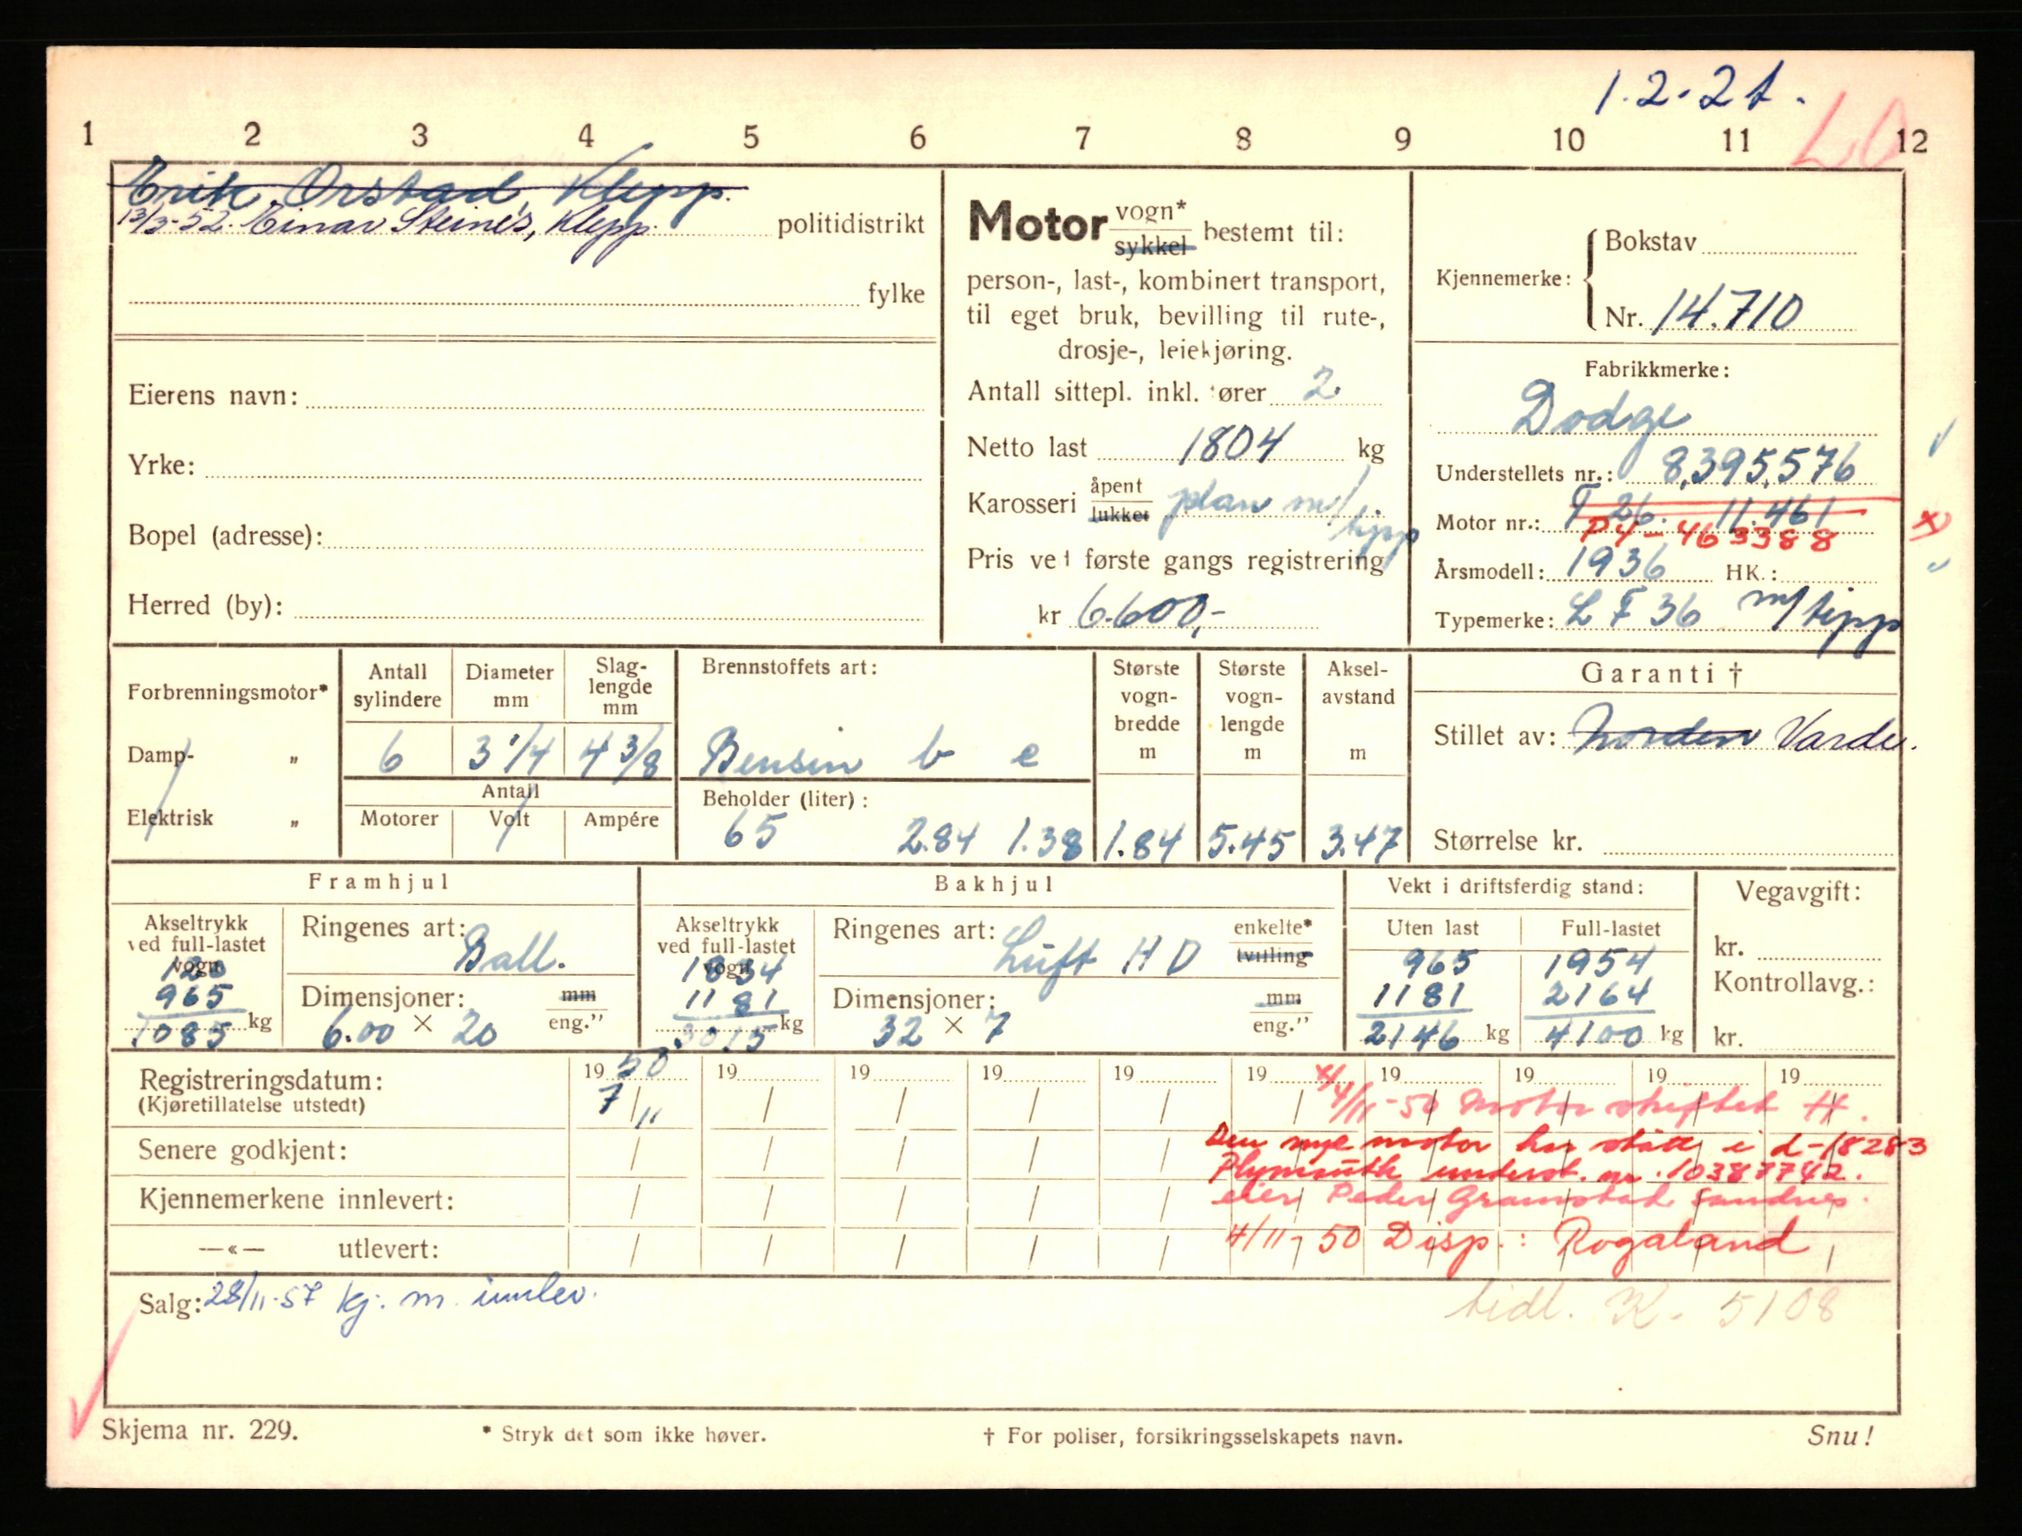 1.2-2t.
LD
1 2 3 4 5 6 7 8 9 10 11 12
Erik Orstad, Klepp.
13/3-52. Einar Steines, Klepp. politidistrikt
fylke
Eierens navn:
Yrke:
Bopel (adresse):
Herred (by):
Motor vogn* sykkel bestemt til:
person-, last-, kombinert transport,
til eget bruk, bevilling til rute-,
drosje-, leiekjøring.
Antall sittepl. inkl. fører 2
Netto last 1804 kg
Karosseri åpent lukket plan m/tipp
Pris ved første gangs registrering
kr 6.600,-
Kjennemerke: Bokstav
Nr. 14.710
Fabrikkmerke:
Dodge
Understellets nr.: 8,395,576
Motor nr.: T 26. 11.461
P4-463388
Årsmodell: 1936 HK.:
Typemerke: L F 36 m/tipp
Forbrenningsmotor*
Damp- „
Elektrisk „
Antall sylindere 6
Diameter mm 3 1/4
Slaglengde mm 4 3/8
Antall
Motorer Volt Ampére
Brennstoffets art:
Bensin b e
Beholder (liter):
65 2.84 1.38
Største vognbredde m 1.84
Største vognlengde m 5.45
Akselavstand m 3.47
Garanti †
Stillet av: Norden Varde.
Størrelse kr.
Framhjul
Akseltrykk ved full-lastet vogn
120
965
1085 kg
Ringenes art: Ball.
Dimensjoner: mm eng."
6.00 × 20
Bakhjul
Akseltrykk ved full-lastet vogn
1834
1181
3015 kg
Ringenes art: Luft H D enkelte* tvilling
Dimensjoner: mm eng."
32 × 7
Vekt i driftsferdig stand:
Uten last Full-lastet
965 1954
1181 2164
2146 kg 4100 kg
Vegavgift:
kr.
Kontrollavg.:
kr.
Registreringsdatum: 1950 19 19 19 19 19 19 19 19 19
(Kjøretillatelse utstedt) 7/11
Senere godkjent:
Kjennemerkene innlevert:
—«— utlevert:
4/11-50 Motor skiftet
Den nye motor har stått i L-18283
Plymouth underst. nr. 10387742.
eier Peder Gramstad Sandnes.
4/11-50 Disp.: Rogaland
Salg: 28/11-57 kj. m. innlev.
tidl. K- 5108
Skjema nr. 229.
* Stryk det som ikke høver.
† For poliser, forsikringsselskapets navn.
Snu!